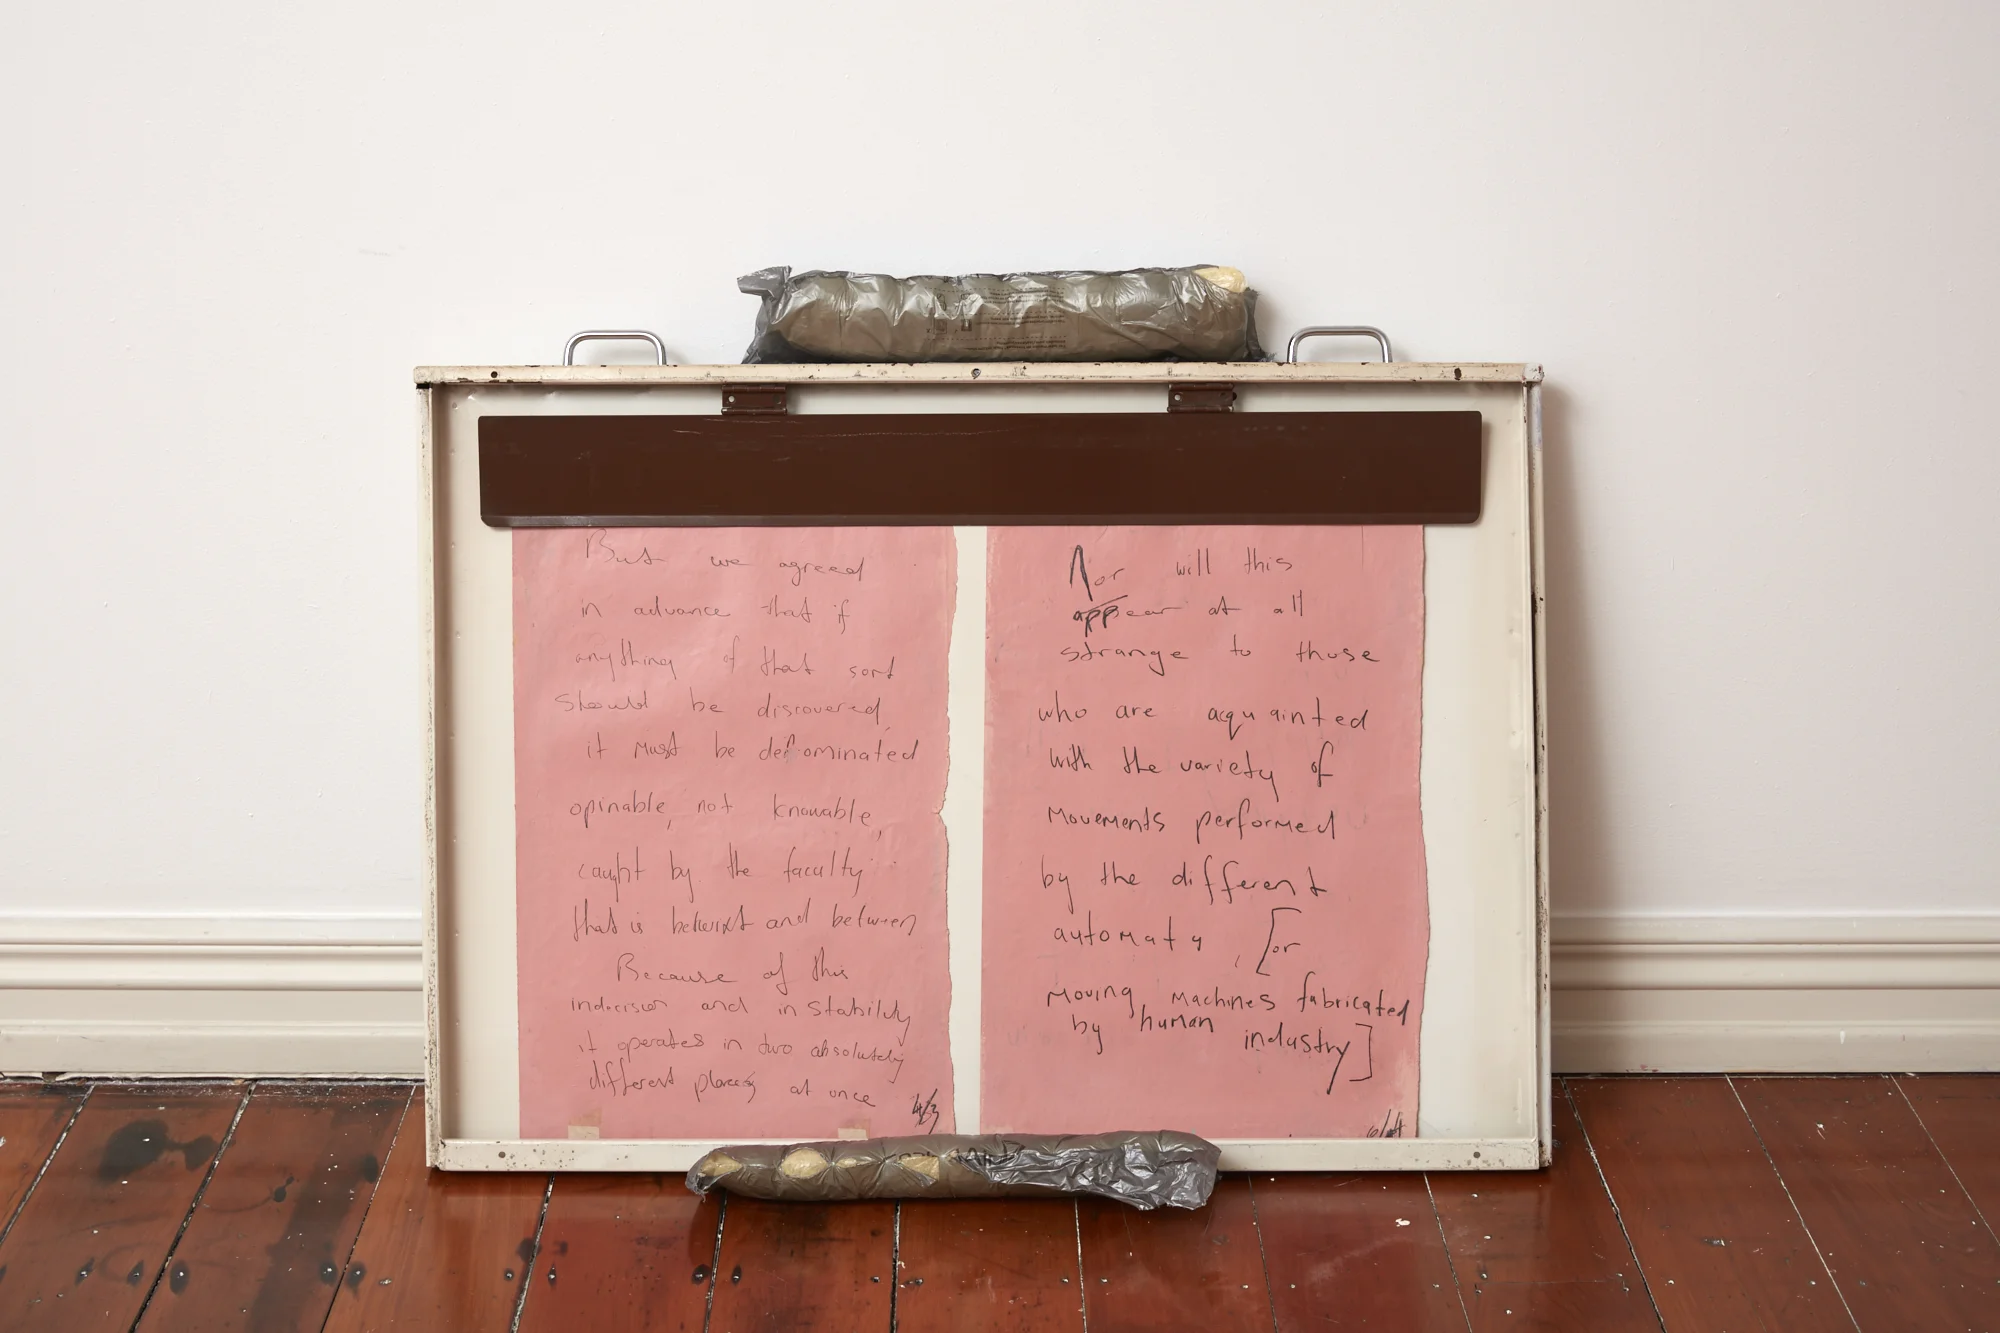 But we agreed
in advance that if
anything of that sort
should be discovered,
it must be denominated
opinable, not knowable,
caught by the faculty
that is betwixt and between
Because of this
indecision and instability
it operates in two absolutely
different places at once
4/3
Nor will this
appear at all
strange to those
who are acquainted
with the variety of
movements performed
by the different
automata, [or
moving machines fabricated
by human
industry]